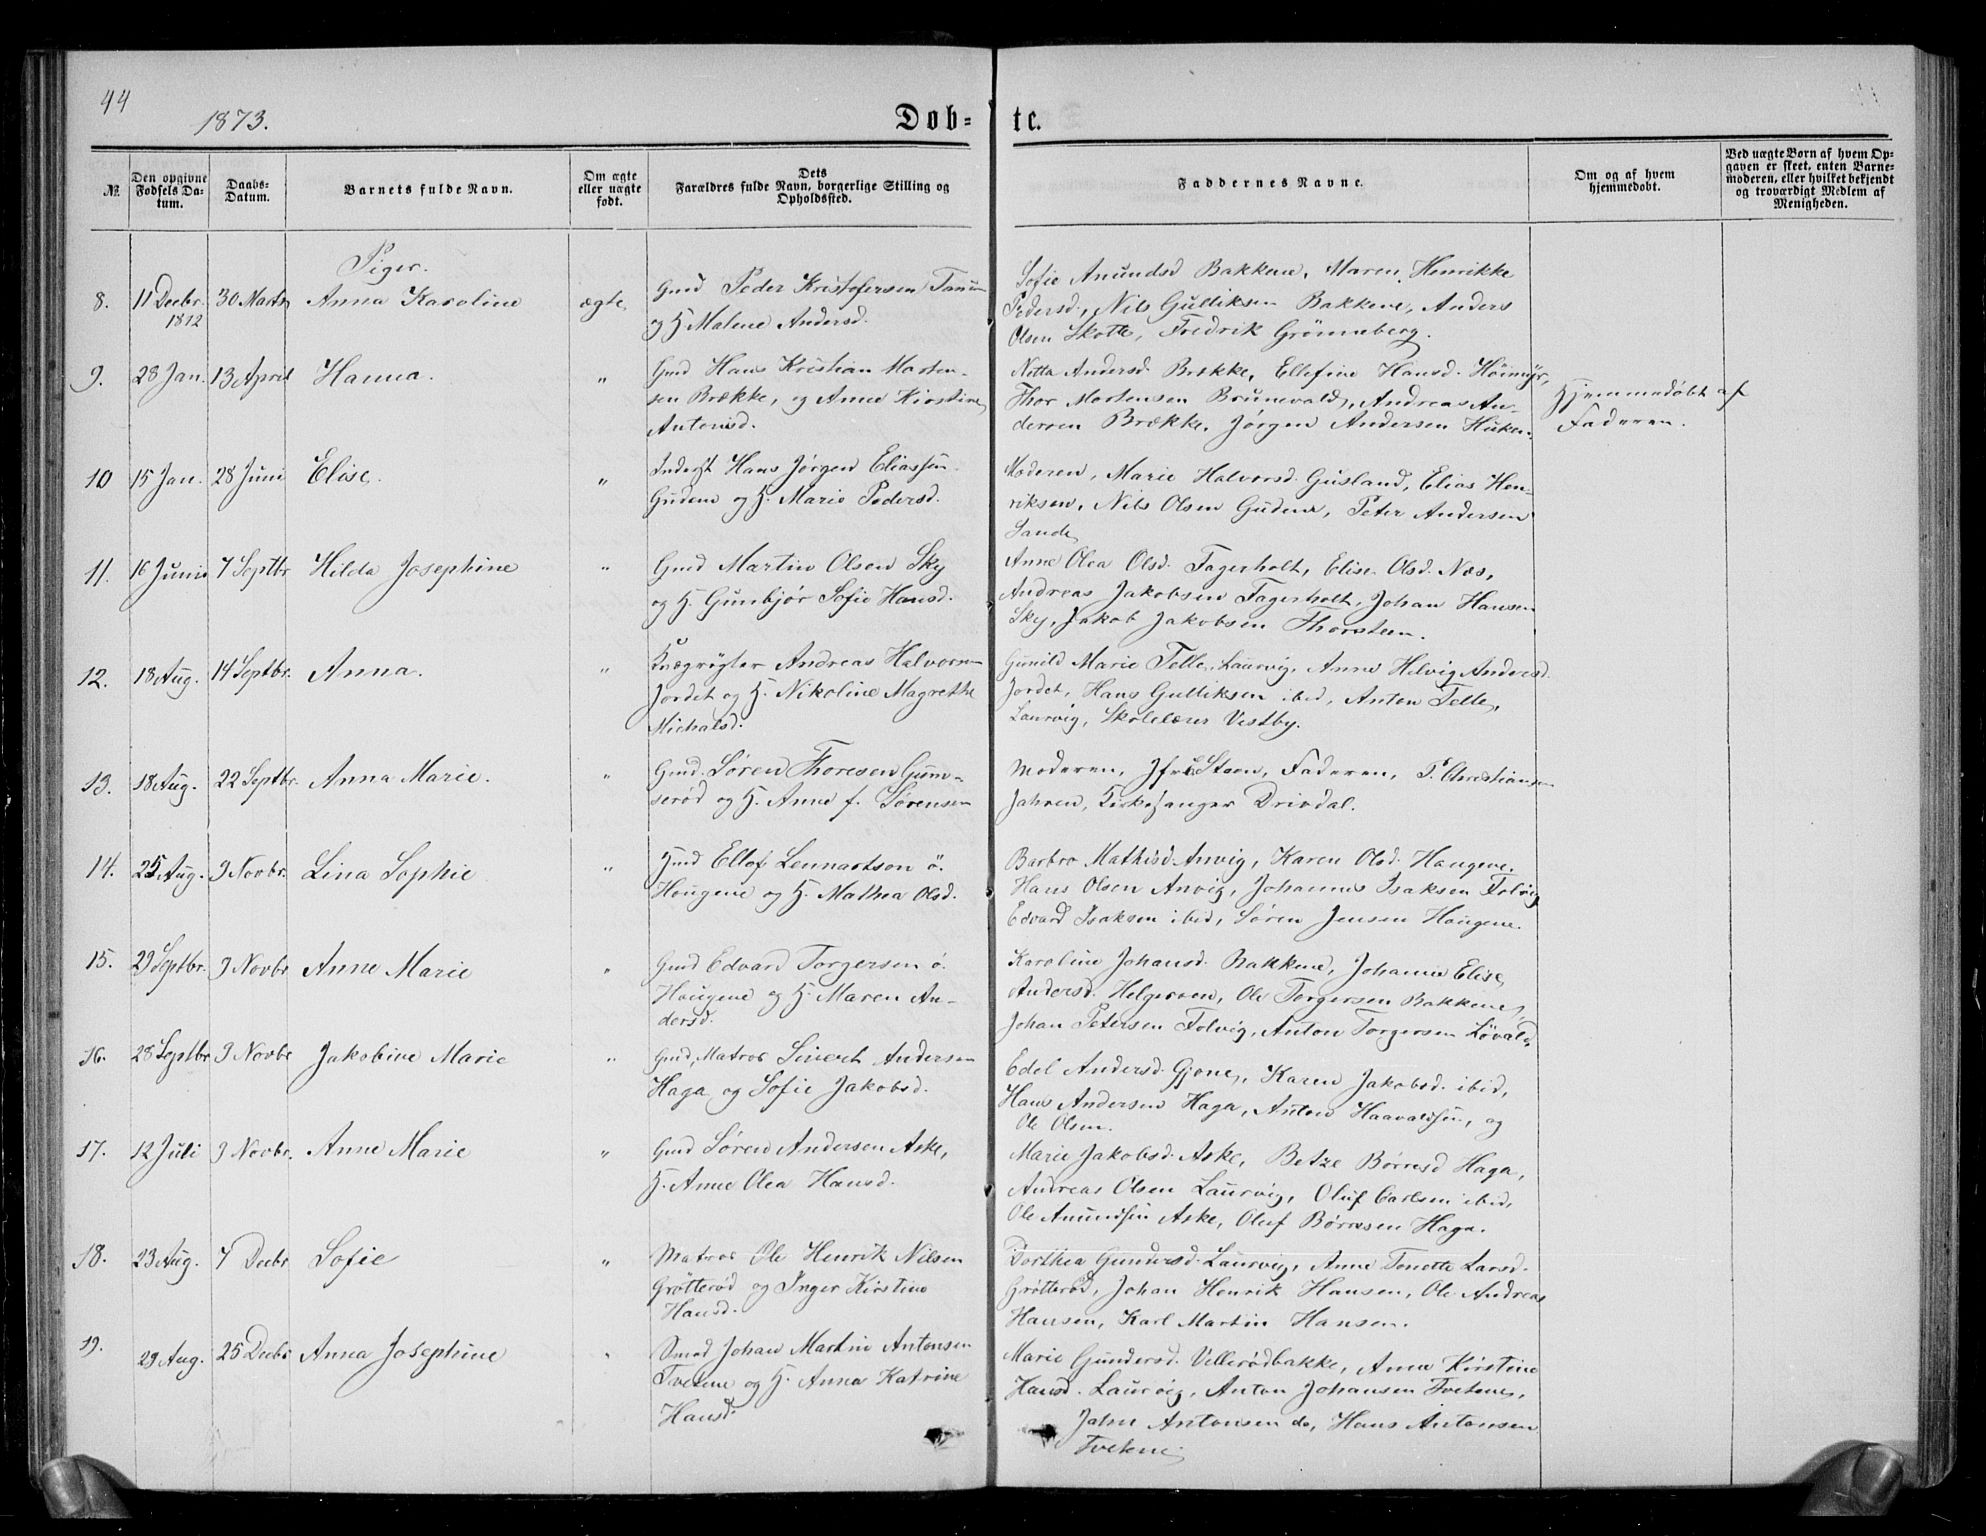 44
1873.
Døb= te.
№
Den opgivne Fødsels Datum.
Daabs-Datum.
Barnets fulde Navn.
Om ægte eller uægte født.
Dets Forældres fulde Navn, borgerlige Stilling og Opholdssted.
Faddernes Navne.
Om og af hvem hjemmedøbt.
Ved uægte Børn af hvem Opgaven er skeet, enten Barnemoderen, eller hvilket bekjendt og troværdigt Medlem af Menigheden.
Piger.
8. 11 Decbr. 1872 30 Marts Anna Karoline ægte
Gmd Peder Kristofersen Tanum
og H. Malene Andersd.
Sofie Anundsd Bakkene, Maren Henrikke
Pedersd, Nils Gulliksen Bakkene, Anders
Olsen Skotte, Fredrik Grønneberg.
9. 28 Jan. 13 April Hanna. "
Gmd Hans Kristian Morten-
sen Brække, og Anne Kirstine
Antonisd.
Andersd. Brække, Ellefine Hansd.
Thor Mortensen Brunevald, Andreas An-
dersen Brække, Jørgen Andersen
Hjemmedøbt af
Faderen.
10 15 Jan. 28 Juni Elise. "
Inderst Hans Jørgen Eliassen
Gudem og H. Marie Pedersd.
Moderen, Marie Halvorsd. Gusland, Elias Hen-
riksen, Nils Olsen Gudem, Peter Andersen
Sande
11. 16 Juni 7 Septbr Hilda Josephine "
Gmd Martin Olsen Sky
og H. Gunbjør Sofie Hansd.
Anne Olea Olsd. Fagerholt, Elise Olsd. Næs,
Andreas Jakobsen Fagerholt, Johan Hansen
Sky, Jakob Jakobsen Thorsteen.
12. 18 Aug. 14 Septbr. Anna. "
Kvægrøgter Andreas Halvorsen
Jordet og H. Nikoline Magrethe
Michalsd.
Gunild Marie Telle, Laurvig, Anne Helvig Andersd.
Jordet, Hans Gulliksen ibid, Anton Telle,
Laurvig, Skolelærer Vestby.
13. 18 Aug. 22 Septbr. Anna Marie. "
Gmd. Søren Thoresen Gum-
serød og H. Anne f. Sørensen
Moderen, Jfr. Steen, Faderen, P. Christiansen
Jahren, Kirkesanger Drivdal.
14. 25 Aug. 9 Novbr. Lina Sophie "
Hmd Ellof Lennartson ö.
Hougene og H. Mathea Olsd.
Barbro Mathisd. Anvig, Karen Olsd. Haugene.
Hans Olsen Anvig, Johannes Isaksen Folvig
Edvard Isaksen ibid, Søren Jensen Haugene.
15. 29 Septbr. 9 Novbr Anne Marie "
Gmd Edvard Torgersen ö.
Hougene og H. Maren An-
dersd.
Karoline Johansd. Bakkene, Johanne Elise
Andersd. Helgeroen, Ole Torgersen Bakkene,
Johan Petersen Folvig, Anton Torgersen
16. 28 Septbr 9 Novbr Jakobine Marie "
Gmd, Matros Sivert Andersen
Haga og Sofie Jakobsd.
Edel Andersd. Gjone, Karen Jakobsd. ibid,
Hans Andersen Haga, Anton Haavaldsen, og
Ole Olsen.
17. 12 Juli 9 Novbr. Anne Marie "
Gmd Søren Andersen Aske,
H. Anne Olea Hansd.
Marie Jakobsd. Aske, Betze Børresd Haga,
Andreas Olsen Laurvig, Oluf Carlsen ibid,
Ole Amundsen Aske, Oluf Børresen Haga.
18. 23 Aug. 7 Decbr Sofie "
Matros Ole Henrik Nilsen
Grøtterød og Inger Kirstine
Hansd.
Dorthea Gundersd. Laurvig, Anne Tonette Larsd.
Grøtterød, Johan Henrik Hansen, Ole Andreas
Hansen, Karl Martin Hansen.
19. 29 Aug. 25 Decbr Anna Josephine "
Smed Johan Martin Antonsen
Tvetene og H. Anna Katrine
Hansd.
Marie Gundersd. Vellerødbakke, Anna Kirstine
Hansd. Laurvig, Anton Johansen Tvetene,
John Antonsen do, Hans Antonsen
Tvetene